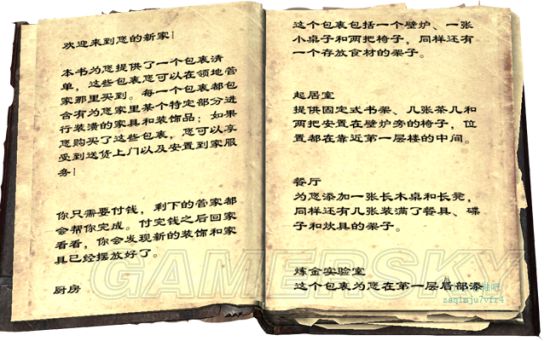 欢迎来到您的新家！
本书为您提供了一个包裹清
单，这些包裹您可以在领地管
家那里买到。每一个包裹都包
含有为您家里某个特定部分进
行装潢的家具和装饰品；如果
您购买了这些包裹，您可以享
受到送货上门以及安置到家服
务！
你只需要付钱，剩下的管家都
会帮你完成。付完钱之后回家
看看，你会发现新的装饰和家
具已经摆放好了。
厨房
这个包裹包括一个壁炉、一张
小桌子和两把椅子，同样还有
一个存放食材的架子。
起居室
提供固定式书架、几张茶几和
两把安置在壁炉旁的椅子，位
置都在靠近第一层楼的中间。
餐厅
为您添加一张长木桌和长凳，
同样还有几张装满了餐具、碟
子和炊具的架子。
炼金实验室
这个包裹为您在第一层眉部添
GAMERSKY
zaqimju7vfr4